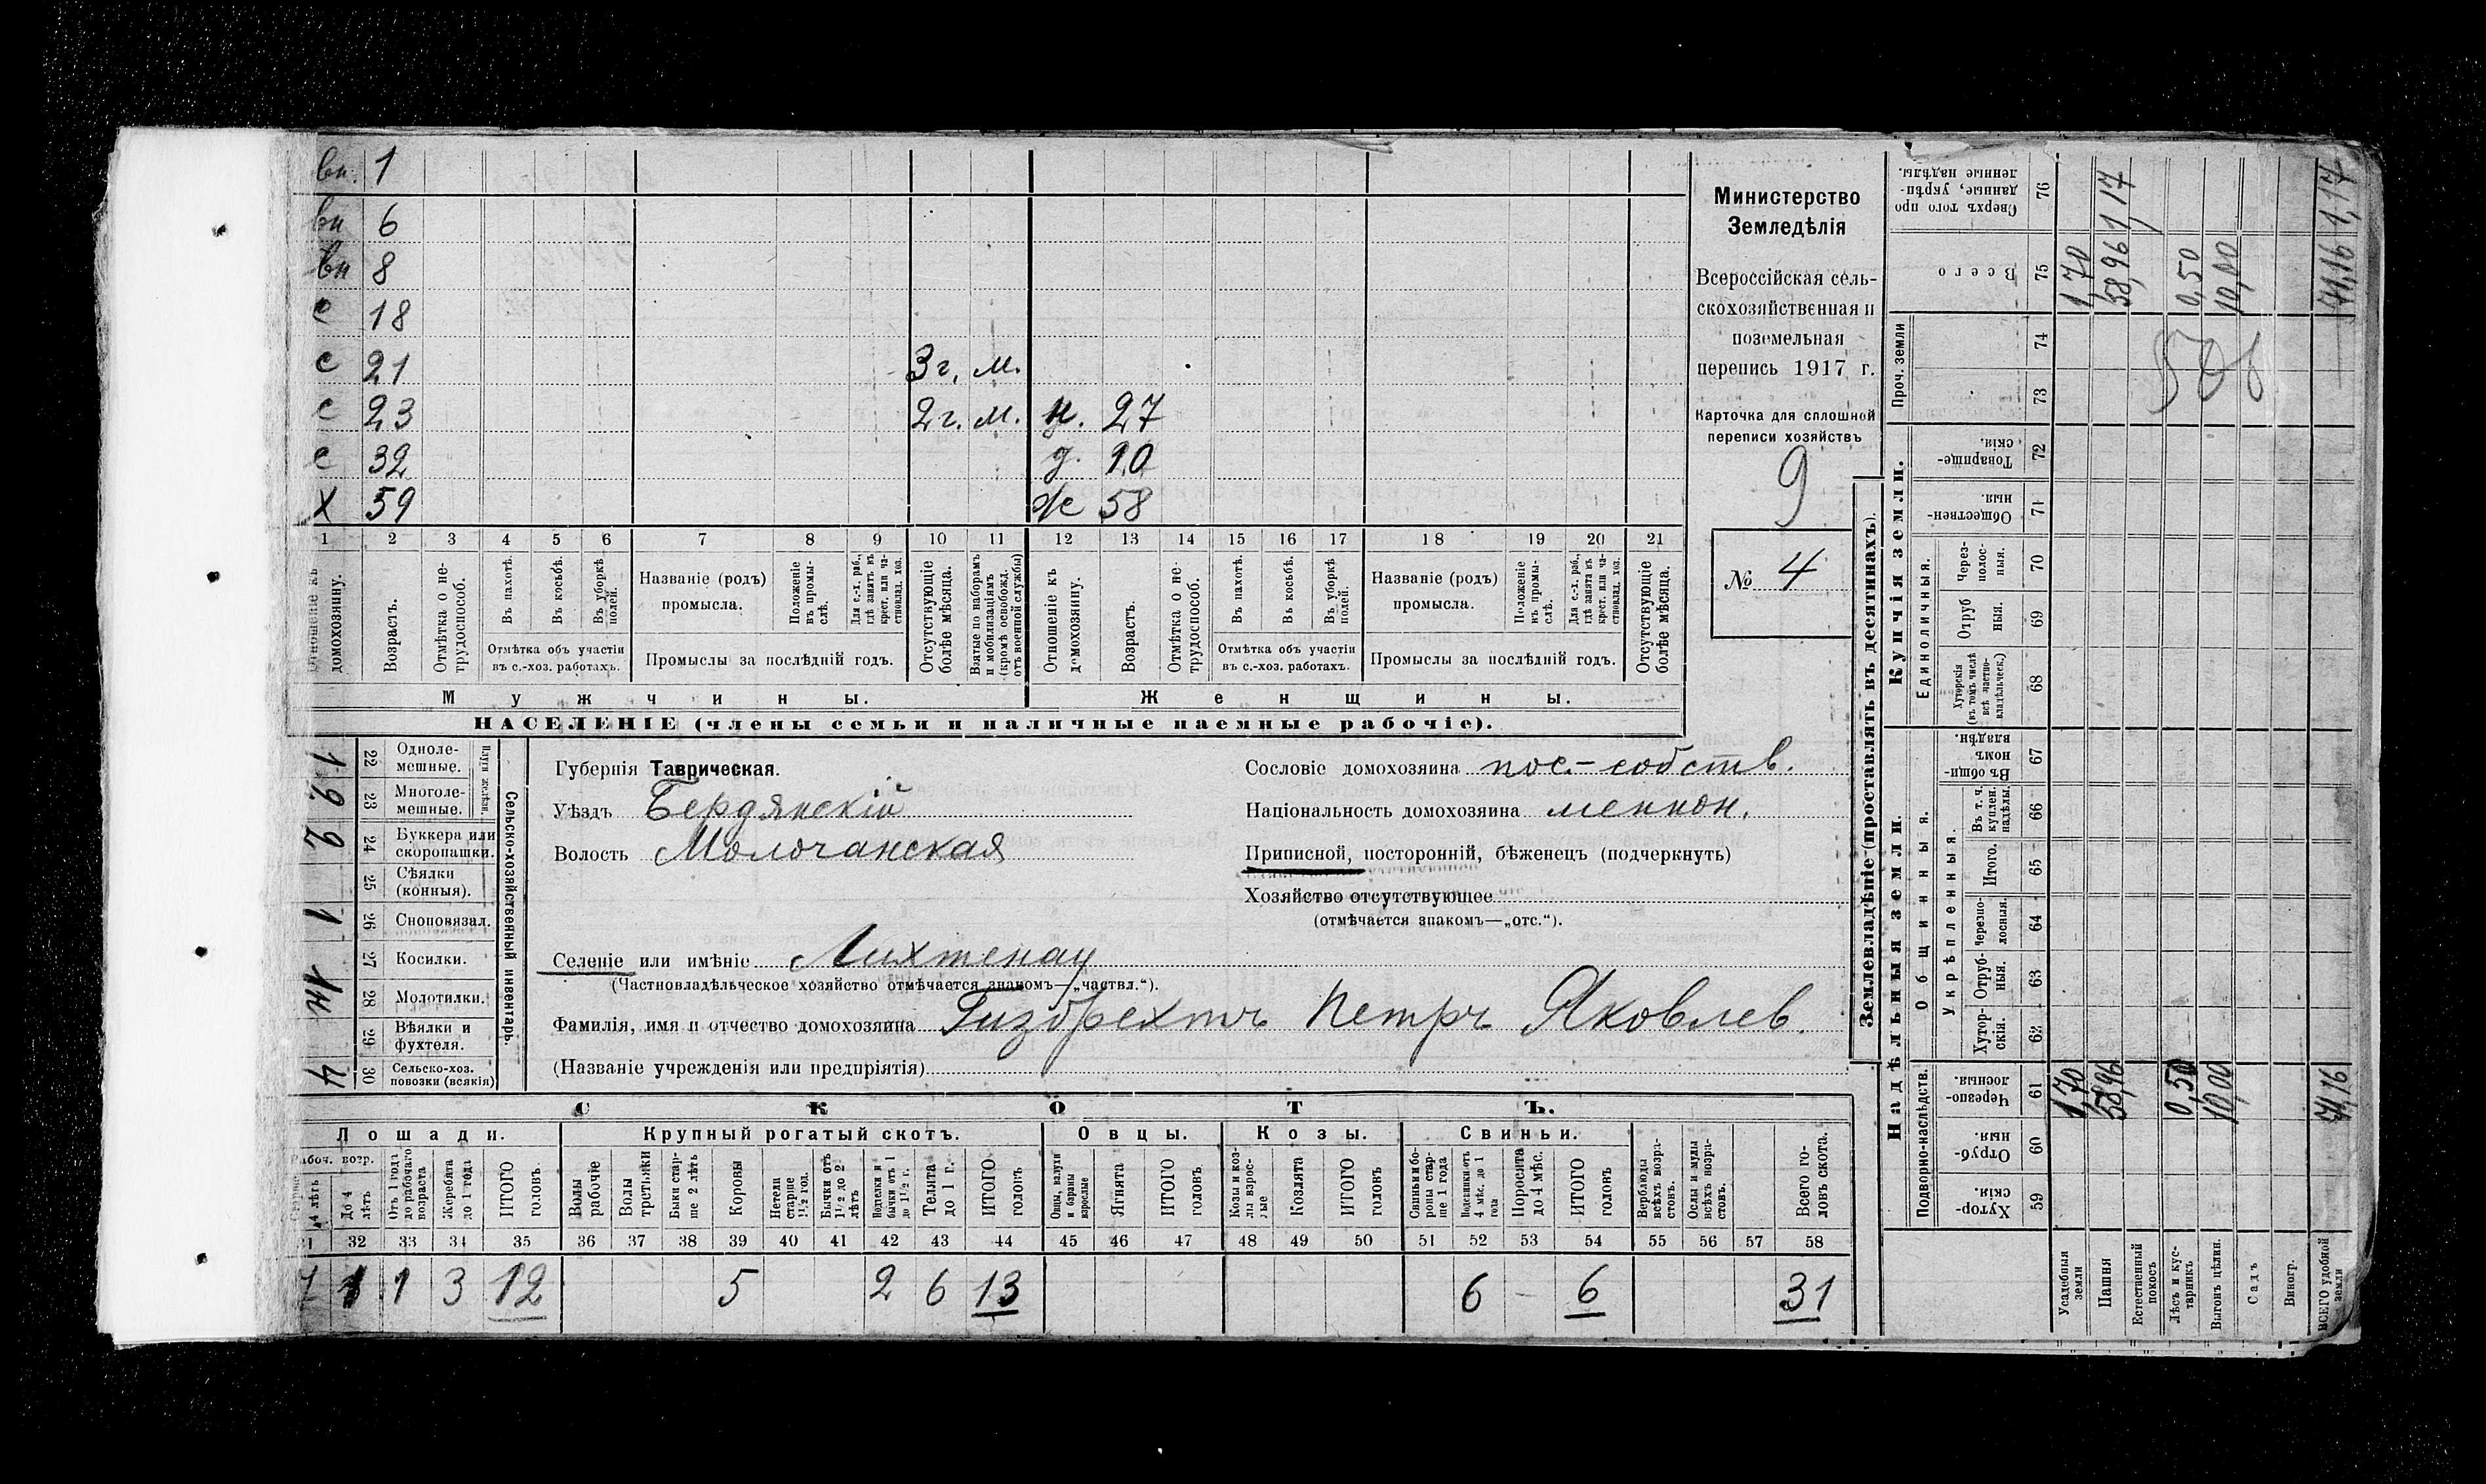 вн. 1
вн 6
вн 8
с 18
с 21 3 г. м.
с 23 2 г. м. н. 27
с 32 д. 10
х 59 ж 58
1 2 3 4 5 6 7 8 9 10 11 12 13 14 15 16 17 18 19 20 21
Отношеніе къ домохозяину.
Возрастъ.
Отмѣтка о нетрудоспособ.
Въ пахотѣ.
Въ косьбѣ.
Въ уборкѣ полей.
Отмѣтка объ участіи
въ с.-хоз. работахъ.
Названіе (родъ)
промысла.
Положеніе въ промыслѣ.
Для с.-х. раб., гдѣ занятъ въ крест. или частновлад. хоз.
Промыслы за послѣдній годъ.
Отсутствующіе болѣе мѣсяца.
Взятые по наборамъ и мобилизаціямъ (кромѣ освобожд. отъ военной службы)
Отношеніе къ домохозяину.
Возрастъ.
Отмѣтка о нетрудоспособ.
Въ пахотѣ.
Въ косьбѣ.
Въ уборкѣ полей.
Отмѣтка объ участіи
въ с.-хоз. работахъ.
Названіе (родъ)
промысла.
Положеніе въ промыслѣ.
Для с.-х. раб., гдѣ занята въ крест. или частновлад. хоз.
Промыслы за послѣдній годъ.
Отсутствующіе болѣе мѣсяца.
Мужчины. Женщины.
НАСЕЛЕНІЕ (члены семьи и наличные наемные рабочіе).
Министерство
Земледѣлія
Всероссійская сель-
скохозяйственная и
поземельная
перепись 1917 г.
Карточка для сплошной
переписи хозяйствъ
9
№ 4
Сельско-хозяйственный инвентарь.
Плуги желѣзн.
1 22 Одноле-
мешные.
2 23 Многоле-
мешные.
2 24 Буккера или
скоропашки.
25 Сѣялки
(конныя).
1 26 Сноповязал.
27 Косилки.
1н 28 Молотилки.
29 Вѣялки и
фухтеля.
4 30 Сельско-хоз.
повозки (всякія)
Губернія Таврическая.
Уѣздъ Бердянскій
Волость Молочанская
Сословіе домохозяина пос.-собств.
Національность домохозяина меннон.
Приписной, посторонній, бѣженецъ (подчеркнуть)
Хозяйство отсутствующее
(отмѣчается знакомъ—„отс.“).
Селеніе или имѣніе Лихтенау
(Частновладѣльческое хозяйство отмѣчается знакомъ—„частвл.“).
Фамилія, имя и отчество домохозяина Гизбрехтъ Петръ Яковлев.
(Названіе учрежденія или предпріятія)
СКОТЪ.
Лошади. Крупный рогатый скотъ. Овцы. Козы. Свиньи.
Рабоч. возр.
До 4 лѣтъ
Отъ 1 года до рабочаго возраста
Жеребята до 1 года
ИТОГО головъ.
Волы рабочіе
Волы третьяки
Быки старше 2 лѣтъ
Коровы
Нетели старше 1½ год.
Бычки отъ 1½ до 2 лѣтъ
Телки и бычки отъ 1 до 1½ г.
Телята до 1 г.
ИТОГО головъ
Овцы, валухи и бараны взрослые
Ягнята
ИТОГО головъ
Козы и козлы взрослые
Козлята
ИТОГО головъ
Свиньи и боровы старше 1 года
Подсвинки отъ 4 мѣс. до 1 года
Поросята до 4 мѣс.
ИТОГО головъ
Верблюды всѣхъ возрастовъ.
Ослы и мулы всѣхъ возрастовъ.
Всего головъ скота.
32 33 34 35 36 37 38 39 40 41 42 43 44 45 46 47 48 49 50 51 52 53 54 55 56 57 58
1 1 3 12 5 2 6 13 6 – 6 31
Землевладѣніе (проставлять въ десятинахъ).
Надѣльныя земли. Купчія земли. Проч. земли
Подворно-наслѣдств.
Общинныя.
Укрѣпленныя.
Единоличныя.
Хуторскія. 59
Отрубныя. 60
Черезполосныя. 61
Хуторскія. 62
Отрубныя. 63
Черезполосныя. 64
Итого. 65
Въ т. ч. куплен. надѣлы. 66
Въ общинномъ владѣн. 67
Хуторскія (въ томъ числѣ всѣ частновладѣльческ.) 68
Отрубныя. 69
Черезполосныя. 70
Общественныя. 71
Товарищескія. 72
73
74
Всего 75
Сверхъ того проданные, укрѣпленные надѣлы. 76
Усадебныя земли 1,70 1,70
Пашня 58,96 58,96 1,17
Естественный покосъ
Лѣсъ и кустарникъ 0,50 0,50
Выгонъ цѣлин. 10,00 10,00
Садъ
Виногр.
ВСЕГО удобной земли 71,16 71,16 1,17